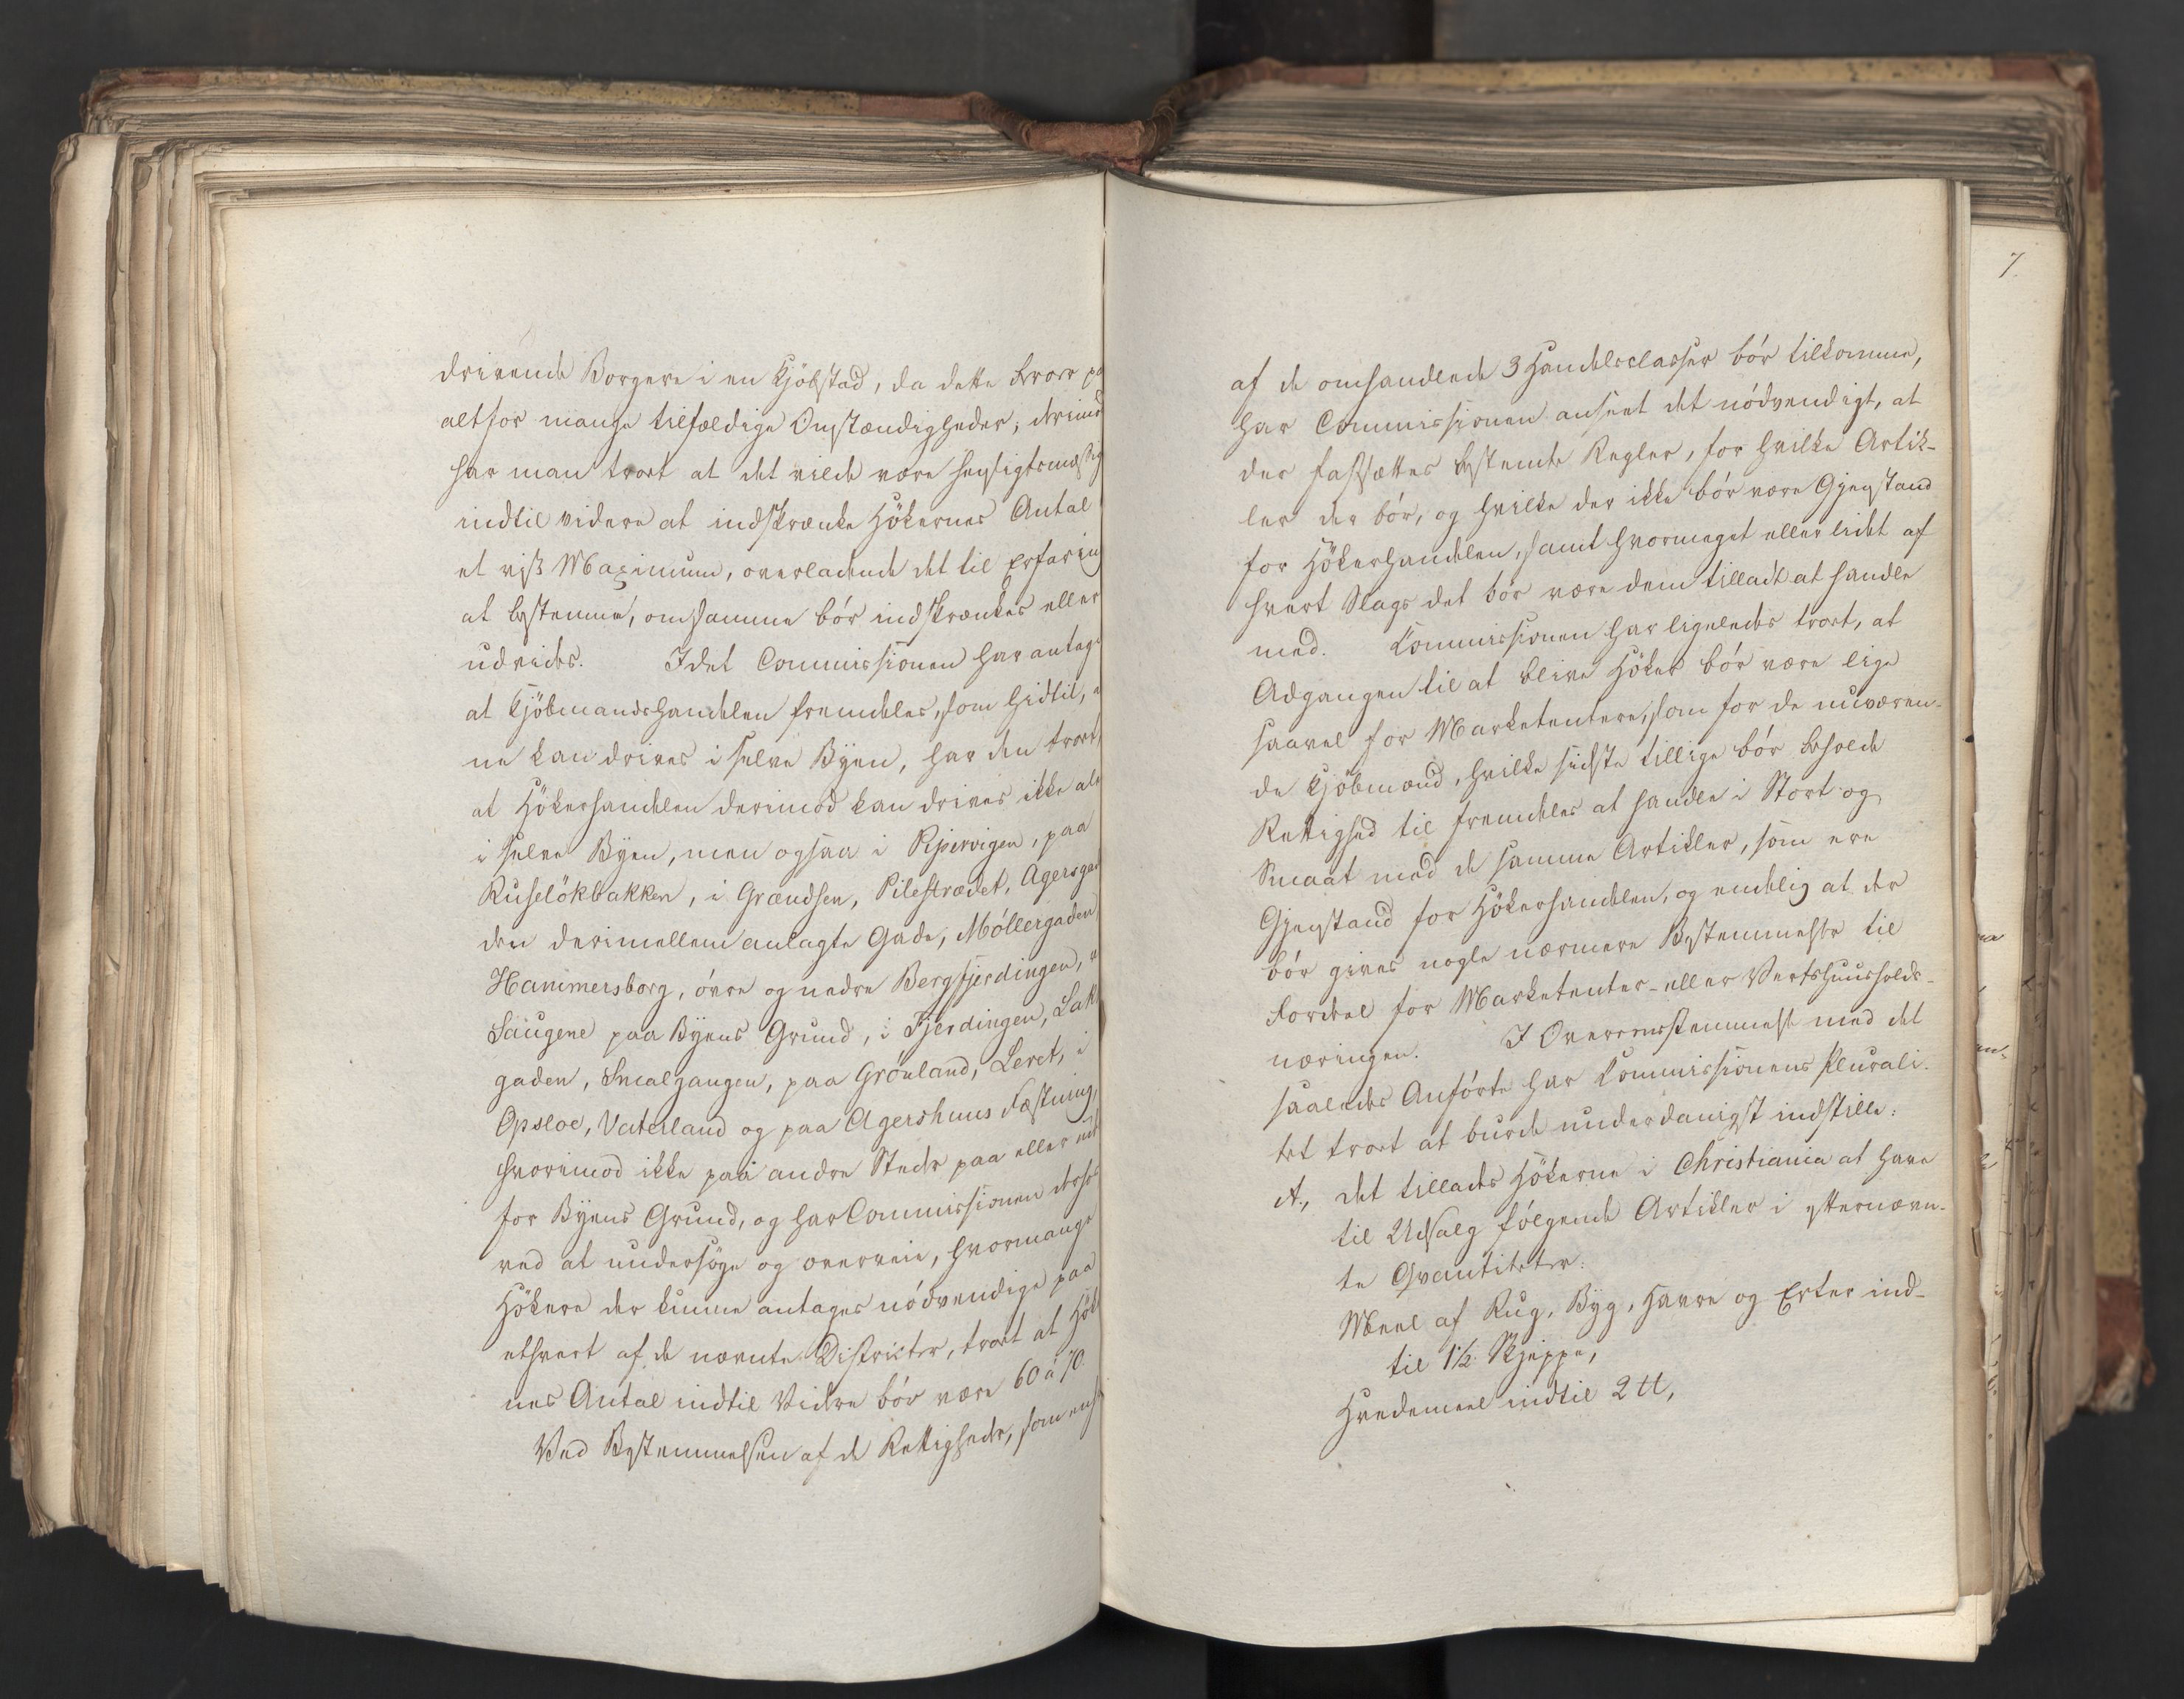 drivende Borgere i en Kjöbstad, da dette beroer pa
altfor mange tilfældige Omstændigheder; derimod
har man troet at det vilde være hensigtsmæssig
indtil videre at indskrænke Hökernes Antal
et vist Maximum, overladende det til Erfaring
at bestemme, om samme bör indskrænkes eller
udvides. Idet Commissionen har antag
at Kjöbmandshandelen fremdeles, som hidtil,
ne kan drives i selve Byen, har den troet,
at Hökerhandelen derimod kan drives ikke ale
i selve Byen, men ogsaa i Pipervigen, paa
Ruselökbakken, i Grændsen, Pilestrædet, Agersga
den derimellem anlagte Gade, Möllergaden
Hammersborg, övre og nedre Bergfjerdingen,
Saugene paa Byens Grund, i Fjerdingen, Lak
gaden, Smalgangen, paa Grönland, Leret, i
Opsloe, Vaterland og paa Agershuus Fæstning,
hvorimod ikke paa andre Steder paa eller ude
for Byens Grund, og har Commissionen desfor
ved at undersöge og overveie, hvormange
Hökere der kunne antages nödvendige paa
ethvert af de nævnte Districter, troet at Hök
nes Antal indtil Videre bör være 60 à 70.
Ved Bestemmelsen af de Rettigheder, som enh
7.
af de omhandlede 3 Handelsclasser bör tilkomme,
har Commissionen anseet det nödvendigt, at
der fastsættes bestemte Regler, for hvilke Artik-
ler der bör, og hvilke der ikke bör være Gjenstand
for Hökerhandelen, samt hvormeget eller lidet af
hvert Slags det bör være dem tilladt at handle
med. Commissionen har ligeledes troet, at
Adgangen til at blive Höker bör være lige
saavel for Marketentere, som for de nuværen-
de Kjöbmænd, hvilke sidste tillige bör beholde
Rettighed til fremdeles at handle i Stort og
Smaat med de samme Artikler, som ere
Gjenstand for Hökerhandelen, og endelig at der
bör gives nogle nærmere Bestemmelser til
Fordeel for Marketenter- eller Vertshuusholds-
næringen. I Overeensstemmelse med det
saaledes Anförte har Commissionens Plurali-
tet troet at burde underdanigst indstille:
A., Det tillades Hökerne i Christiania at have
til Udsalg fölgende Artikler i efternævn-
te Qvantiteter:
Meel af Rug, Byg, Havre og Erter ind-
til 1½ Skjeppe,
Hvedemeel indtil 2 ℔,